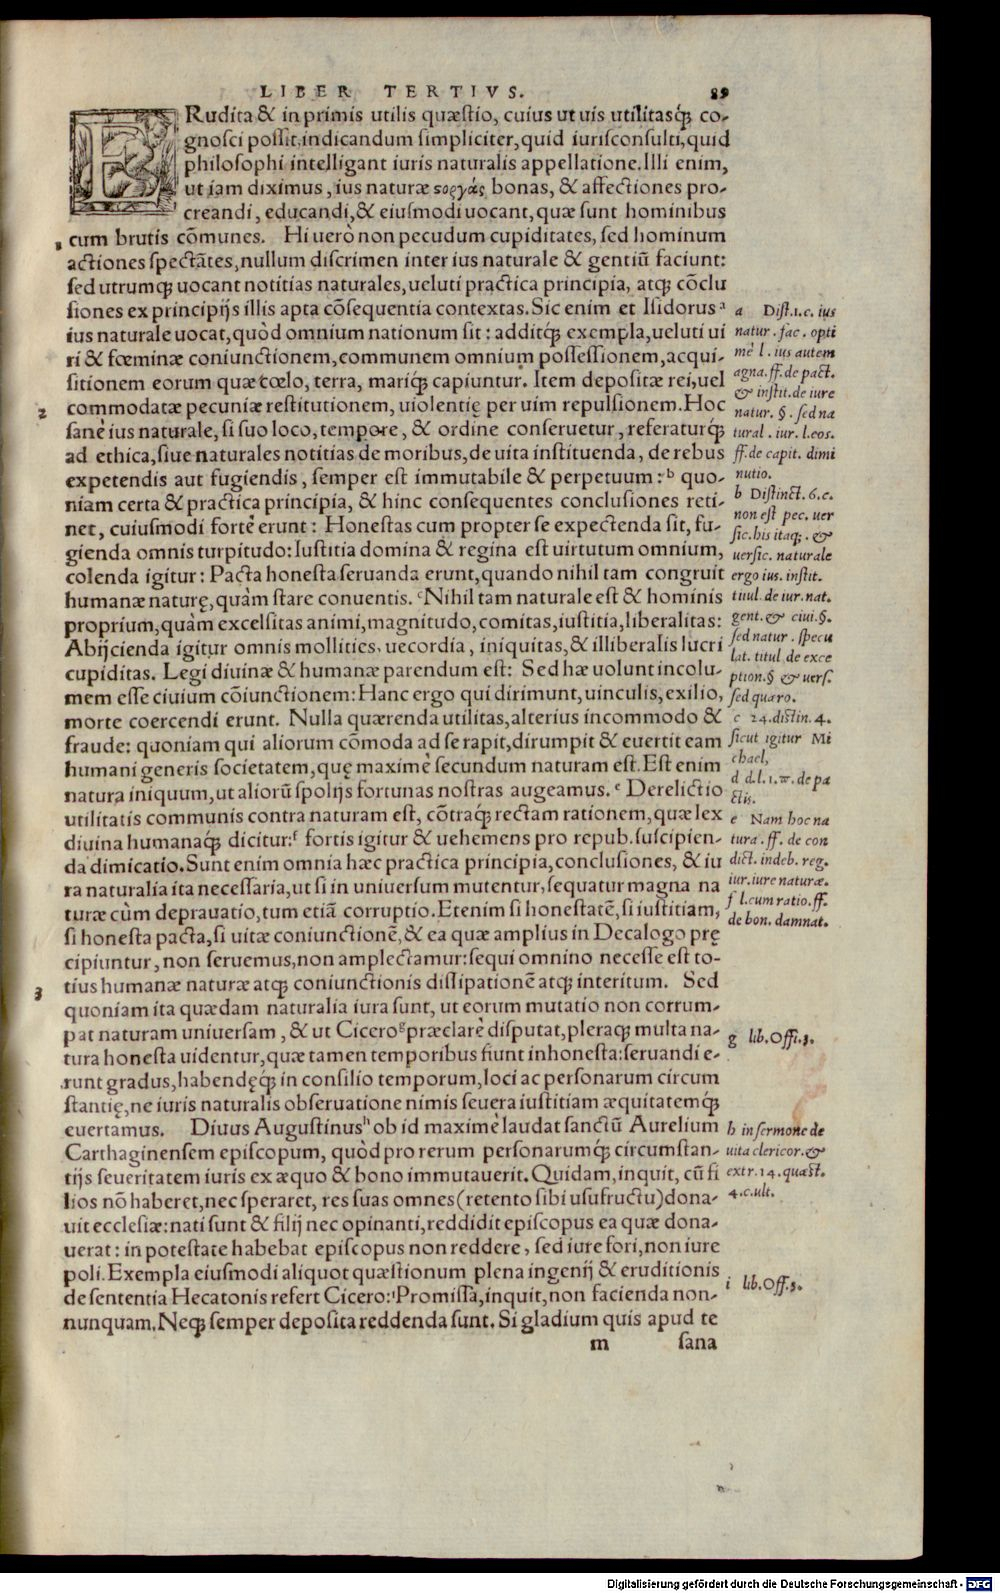 LIBER TERTIVS. 89
ERudita & in primis utilis quæstio, cuius ut uis utilitasq́; co-
gnosci possit, indicandum simpliciter, quid iurisconsulti, quid
philosophi intelligant iuris naturalis appellatione. Illi enim,
ut iam diximus, ius naturæ ςοργὰς bonas, & affectiones pro-
creandi, educandi, & eiusmodi uocant, quæ sunt hominibus
1 cum brutis cōmunes. Hi uerò non pecudum cupiditates, sed hominum
actiones spectātes, nullum discrimen inter ius naturale & gentiū faciunt:
sed utrumq; uocant notitias naturales, ueluti practica principia, atq; cōclu
siones ex principijs illis apta cōsequentia contextas. Sic enim et Isidorus a
ius naturale uocat, quòd omnium nationum sit: additq́; exempla, ueluti ui
ri & fœminæ coniunctionem, communem omnium possessionem, acqui-
sitionem eorum quæ cœlo, terra, mariq́; capiuntur. Item depositæ rei, uel
2 commodatæ pecuniæ restitutionem, uiolentię per uim repulsionem. Hoc
sanè ius naturale, si suo loco, tempore, & ordine conseruetur, referaturq́;
ad ethica, siue naturales notitias de moribus, de uita instituenda, de rebus
expetendis aut fugiendis, semper est immutabile & perpetuum: b quo-
niam certa & practica principia, & hinc consequentes conclusiones reti-
net, cuiusmodi fortè erunt: Honestas cum propter se expectenda sit, fu-
gienda omnis turpitudo: Iustitia domina & regina est uirtutum omnium,
colenda igitur: Pacta honesta seruanda erunt, quando nihil tam congruit
humanæ naturę, quàm stare conuentis. c Nihil tam naturale est & hominis
proprium, quàm excelsitas animi, magnitudo, comitas, iustitia, liberalitas:
Abijcienda igitur omnis mollities, uecordia, iniquitas, & illiberalis lucri
cupiditas. Legi diuinæ & humanæ parendum est: Sed hæ uolunt incolu-
mem esse ciuium cōiunctionem: Hanc ergo qui dirimunt, uinculis, exilio,
morte coercendi erunt. Nulla quærenda utilitas, alterius incommodo &
fraude: quoniam qui aliorum cōmoda ad se rapit, dirumpit & euertit eam
humani generis societatem, quę maximè secundum naturam est. Est enim
natura iniquum, ut aliorū spolijs fortunas nostras augeamus. e Derelictio
utilitatis communis contra naturam est, cōtraq́; rectam rationem, quæ lex
diuina humanaq́; dicitur: f fortis igitur & uehemens pro repub. suscipien-
da dimicatio. Sunt enim omnia hæc practica principia, conclusiones, & iu
ra naturalia ita necessaria, ut si in uniuersum mutentur, sequatur magna na
turæ cùm deprauatio, tum etiā corruptio. Etenim si honestatē, si iustitiam,
si honesta pacta, si uitæ coniunctionē, & ea quæ amplius in Decalogo prę
cipiuntur, non seruemus, non amplectamur: sequi omnino necesse est to-
3 tius humanæ naturæ atq; coniunctionis dissipationē atq; interitum. Sed
quoniam ita quædam naturalia iura sunt, ut eorum mutatio non corrum-
pat naturam uniuersam, & ut Cicero g præclarè disputat, pleraq; multa na-
tura honesta uidentur, quæ tamen temporibus fiunt inhonesta: seruandi e-
runt gradus, habendęq́; in consilio temporum, loci ac personarum circum
stantię, ne iuris naturalis obseruatione nimis seuera iustitiam æquitatemq́;
euertamus. Diuus Augustinus h ob id maximè laudat sanctū Aurelium
Carthaginensem episcopum, quòd pro rerum personarumq́; circumstan-
tijs seueritatem iuris ex æquo & bono immutauerit. Quidam, inquit, cū fi
lios nō haberet, nec speraret, res suas omnes (retento sibi usufructu) dona-
uit ecclesiæ: nati sunt & filij nec opinanti, reddidit episcopus ea quæ dona-
uerat: in potestate habebat episcopus non reddere, sed iure fori, non iure
poli. Exempla eiusmodi aliquot quæstionum plena ingenij & eruditionis
de sententia Hecatonis refert Cicero: i Promissa, inquit, non facienda non-
nunquam. Neq; semper deposita reddenda sunt. Si gladium quis apud te
m sana
a Dist.1.c. ius
natur. fac. opti
mè l. ius autem
agna. ff. de pact.
& instit. de iure
natur. §. sed na
tural. iur. l. eos.
ff. de capit. dimi
nutio.
b Distinct. 6.c.
non est pec. uer
sic. his itaq;. &
uersic. naturale
ergo ius. instit.
titul. de iur. nat.
gent. & ciui. §.
sed natur. specu
lat. titul de exce
ption. § & uers.
sed quaro.
c 24. distin. 4.
sicut igitur Mi
chael,
d d.l.1. π. de pa
ctis.
e Nam hoc na
tura. ff. de con
dict. indeb. reg.
iur. iure naturæ.
f l. cum ratio. ff.
de bon. damnat.
g lib. Offi.3.
h in sermone de
uita clericor. &
extr. 14. quæst.
4.c. ult.
i lib. Off.3.
Digitalisierung gefördert durch die Deutsche Forschungsgemeinschaft - DFG